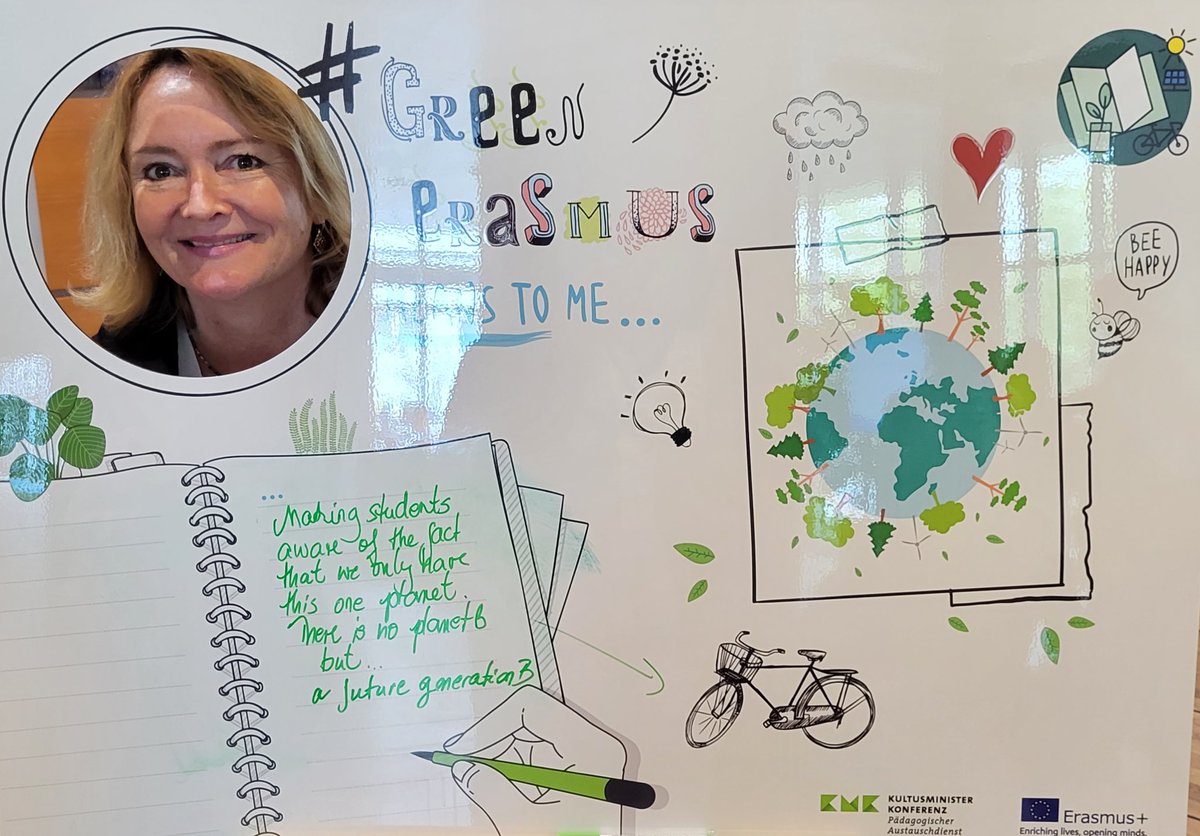 #Green
Erasmus
TO ME...
BEE
HAPPY
...
Making students
aware of the fact
that we only have
this one planet.
There is no planet B
but...
a future generation B
KMK KULTUSMINISTER
KONFERENZ
Pädagogischer
Austauschdienst
Erasmus+
Enriching lives, opening minds.